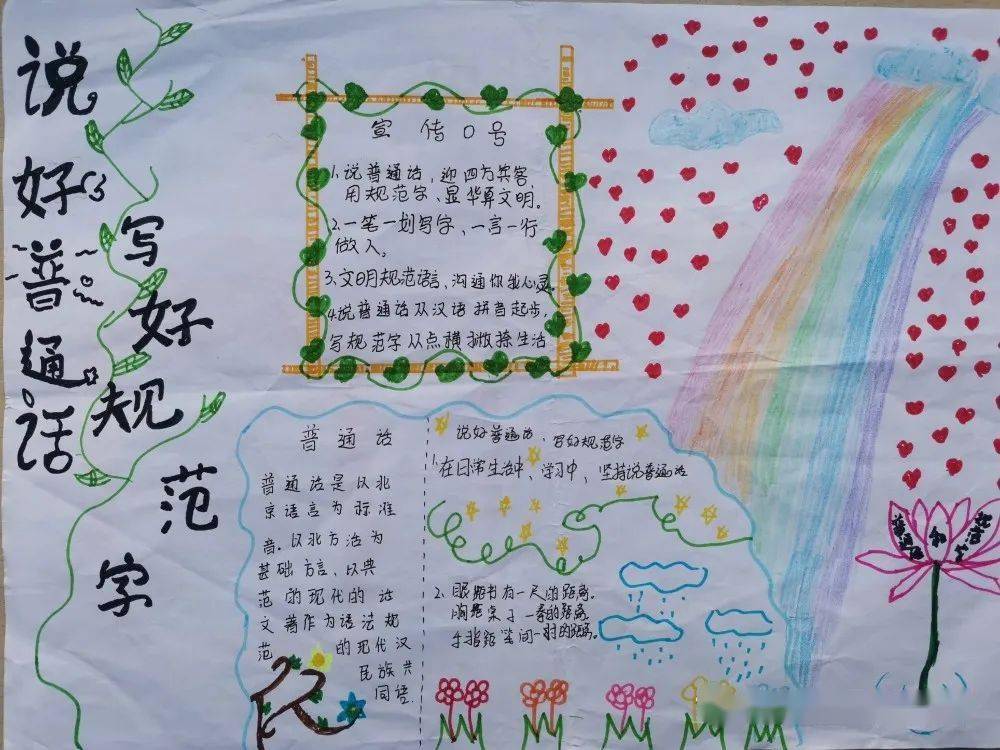 说好普通话
写好规范字
宣传口号
1.说普通话，迎四方宾客，
用规范字、显华夏文明。
2.一笔一划写字、一言一行
做人。
3.文明规范语言，沟通你我心灵。
4.说普通话从汉语拼音起步，
写规范字从点横撇捺生活
普通话
普通话是以北
京语言为标准
音。以北方话为
基础方言、以典
范的现代的话
文著作为语法规
范的现代汉
民族共
同语.
说好普通话、写好规范字
1.在日常生活中、学习中、坚持说普通话
2.眼距书有一尺的距离。
胸距桌子一拳的距离
手指距笔间一寸的距离。
普通话
和
规范字